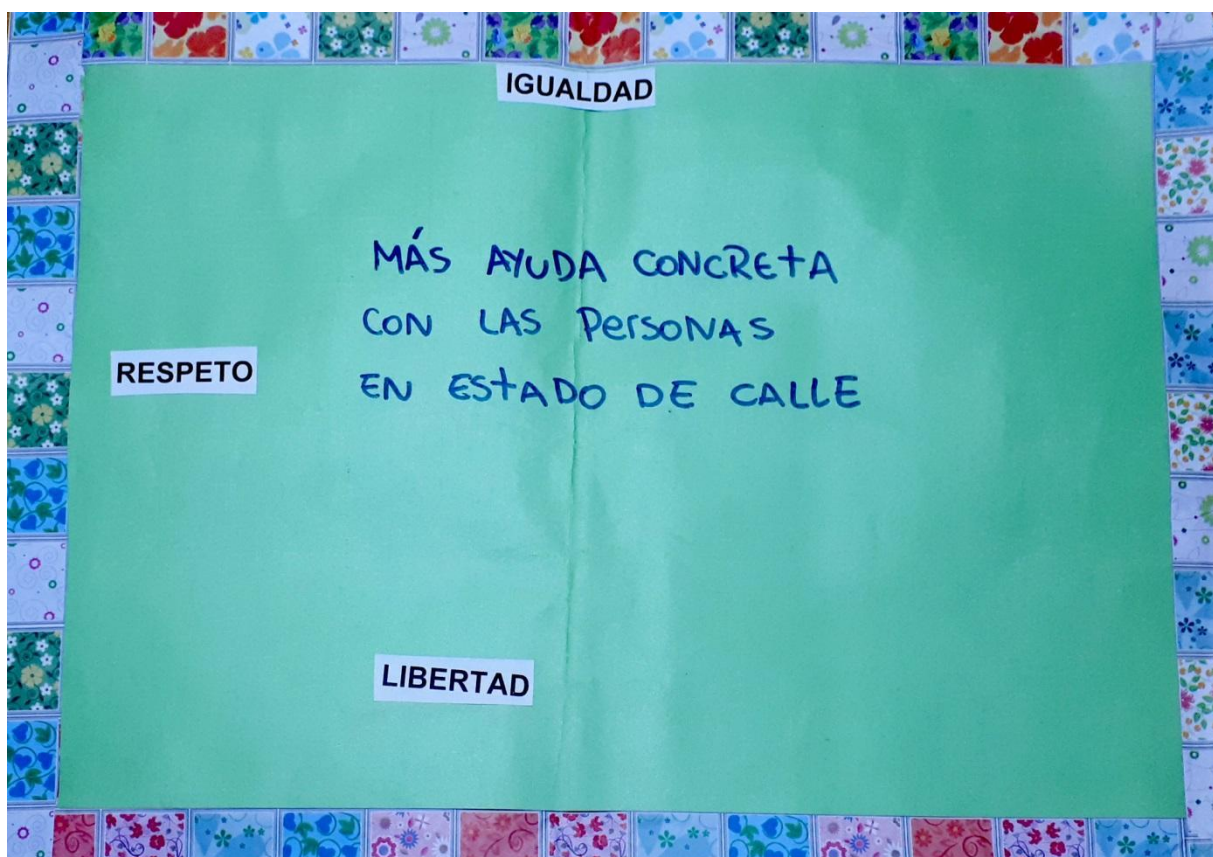 IGUALDAD
MÁS AYUDA CONCRETA
CON LAS PERSONAS
EN ESTADO DE CALLE
RESPETO
LIBERTAD